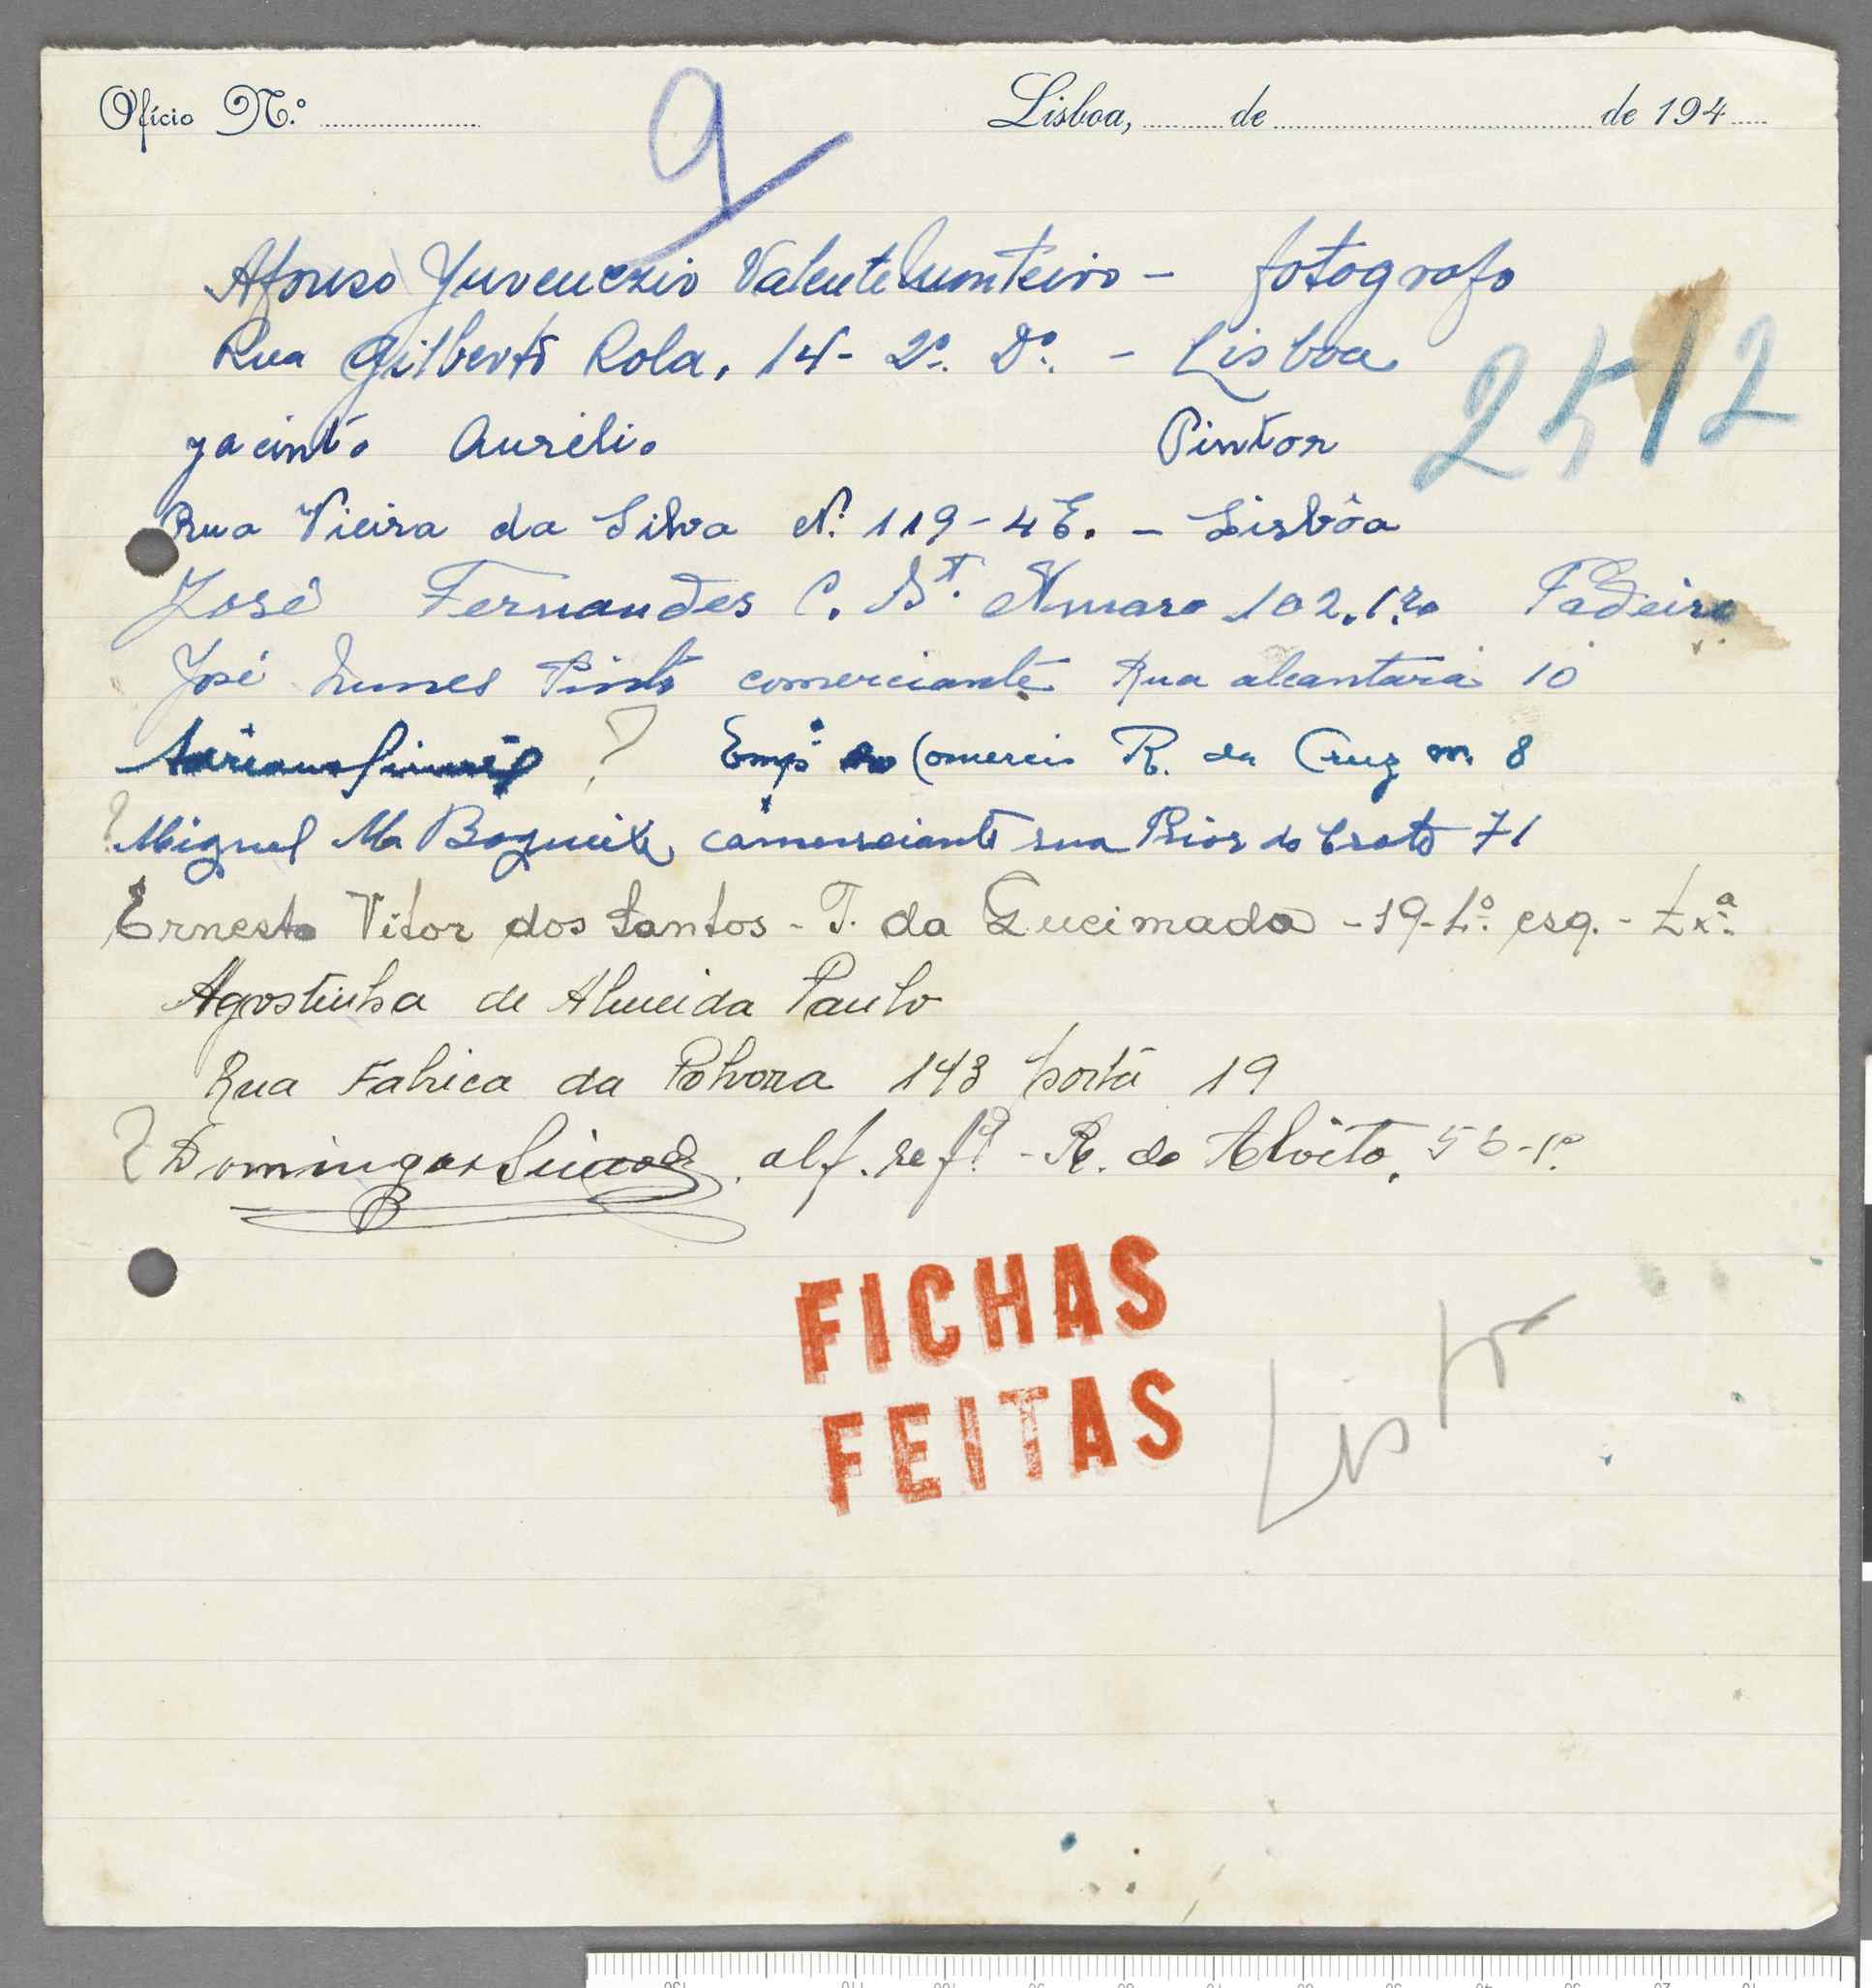 Ofício N.º
Lisboa, de de 194
9
Afonso Juvenezio Valente Monteiro - fotografo
Rua Gilberto Rola, 14 - 2º. Dº. - Lisboa
2512
Jacinto Aurélio Pintor
Rua Vieira da Silva Nº 119 - 4 E. - Lisbôa
José Fernandes C. St. Amaro 102, 1.º Padeiro
José Nunes Pinto comerciante Rua alcantara 10
? Empº no Comercio R. da Cruz n. 8
? Miguel Ma comerciante rua Prior do Crato 71
Ernesto Vitor dos Santos - T. da Queimada - 19 - 1º. esq. - Lxª
Agostinha de Almeida Paulo
Rua Fabrica da Polvora 143 porta 19
? Domingos alf. refº - R. do Alvito, 56 - 1º.
FICHAS
FEITAS
Lista